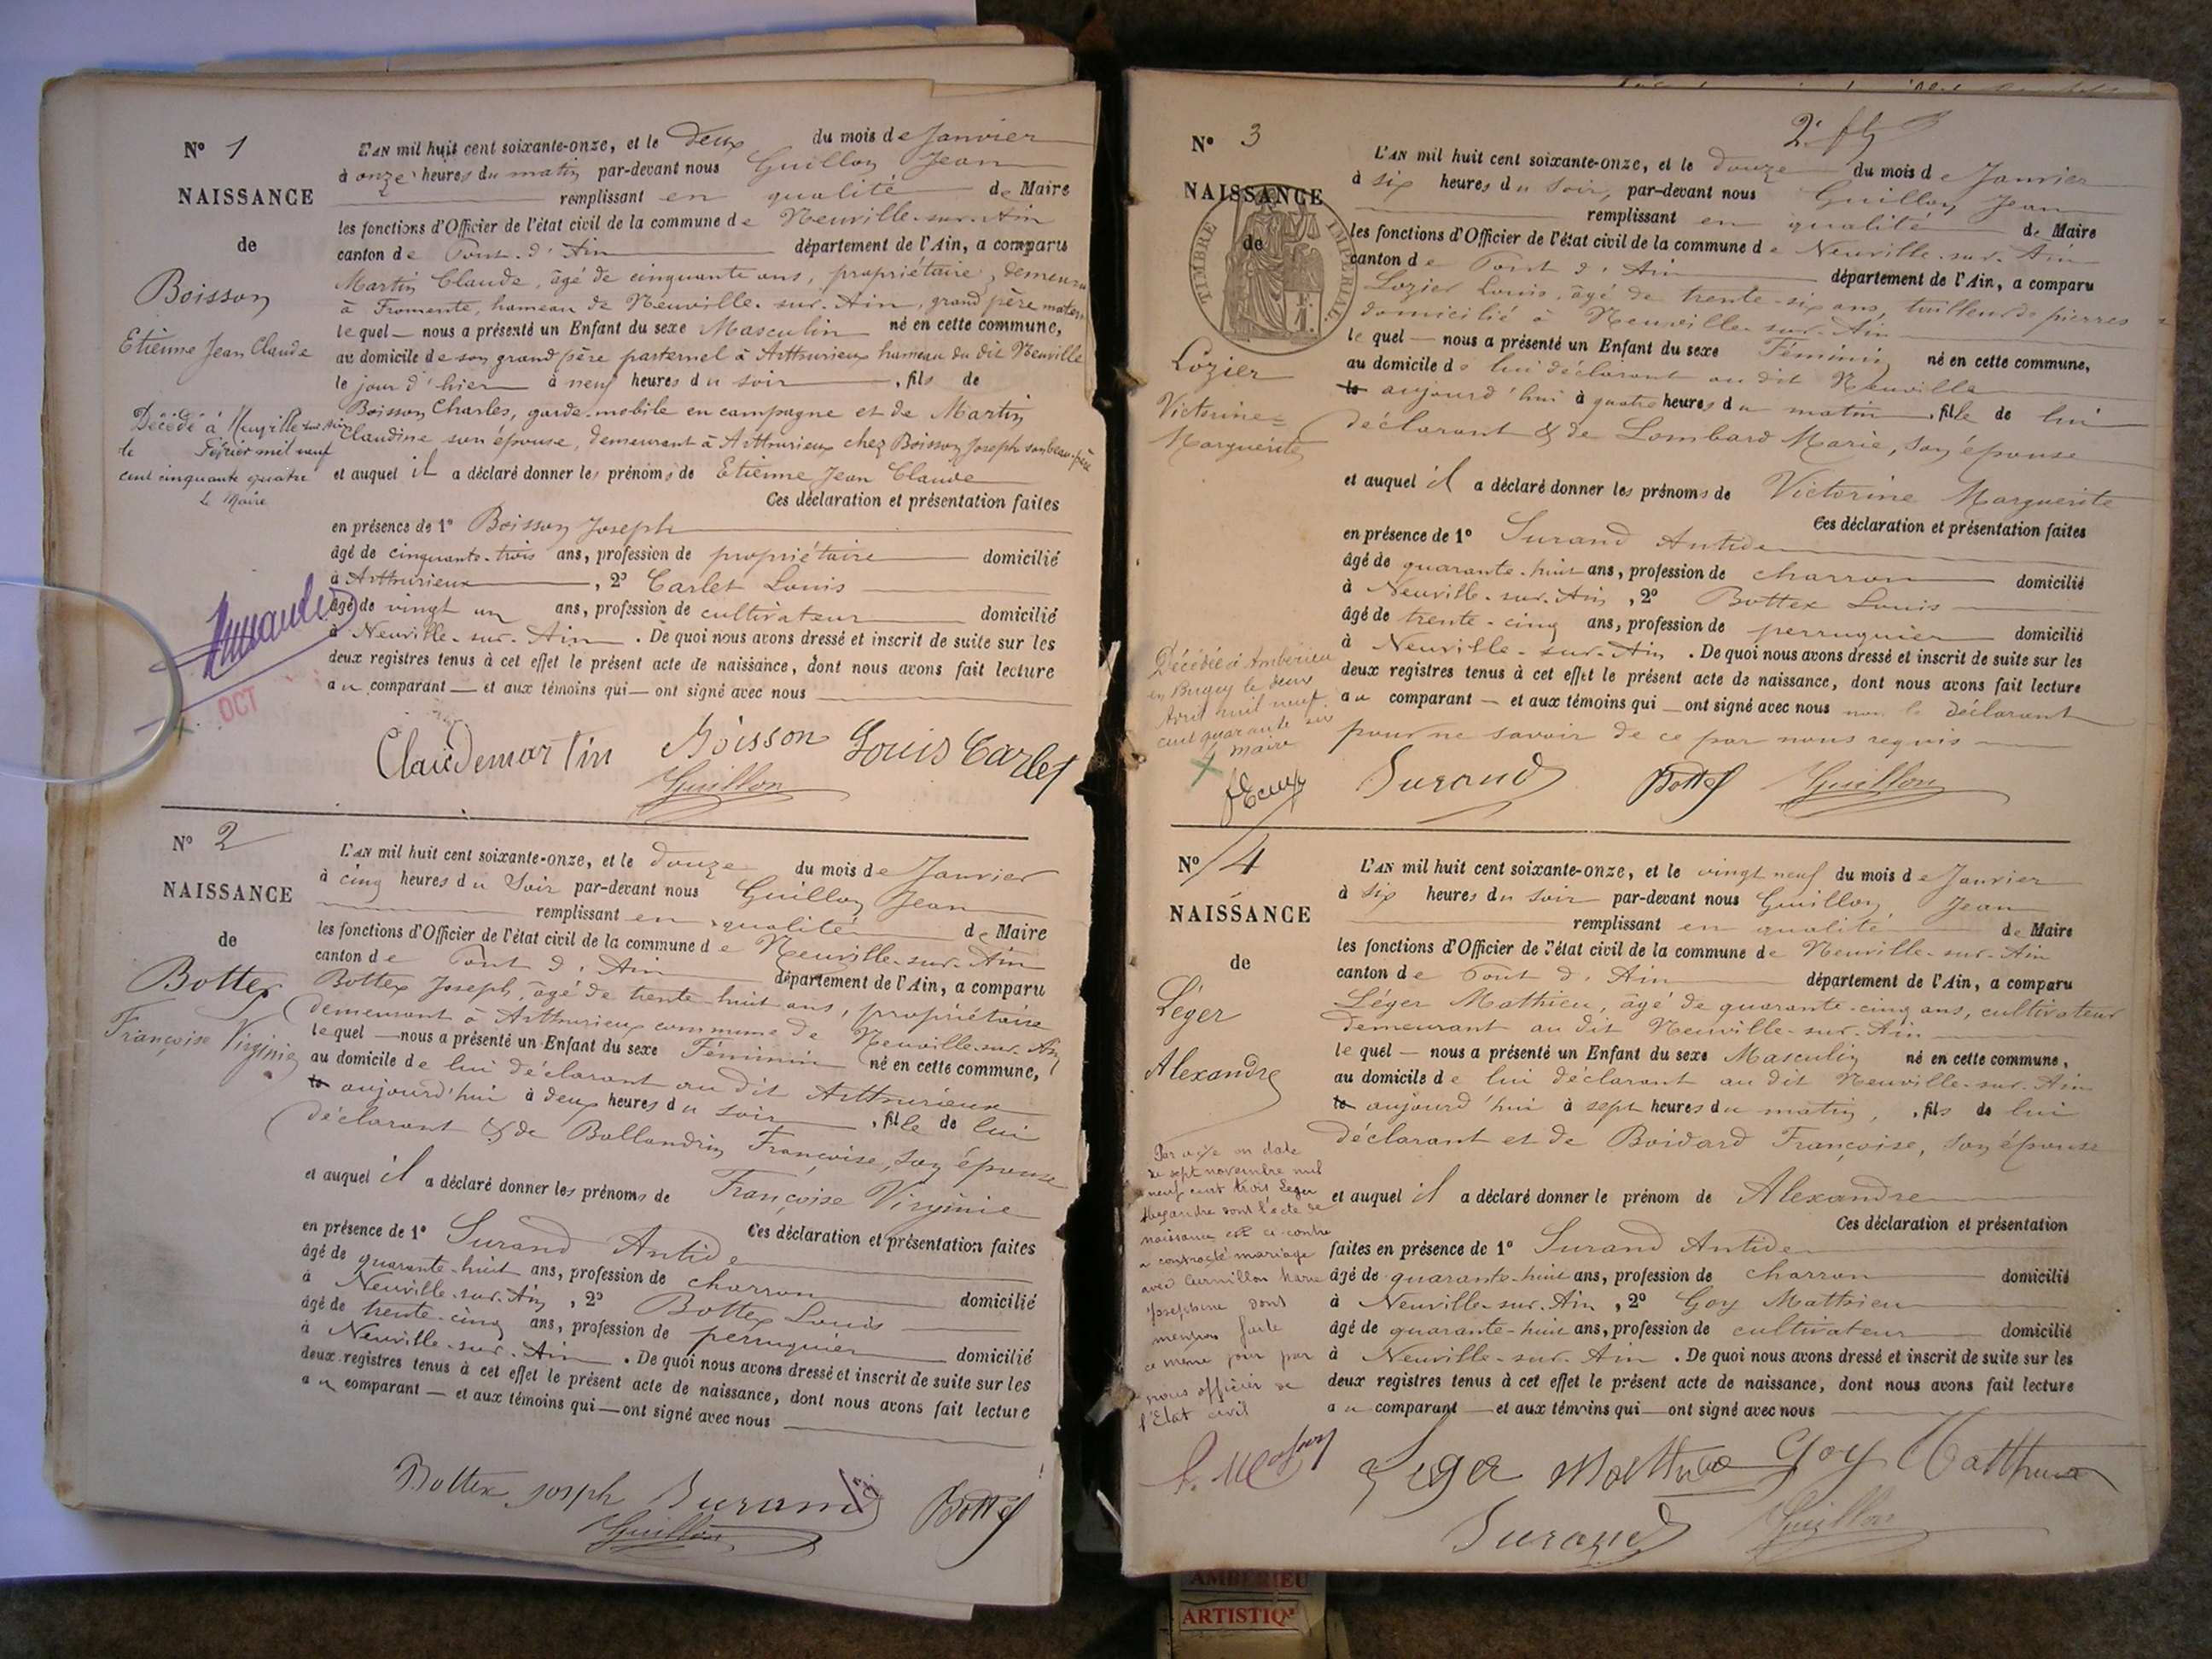 N° 1
NAISSANCE
de
Boisson
Etienne Jean Claude
Décédé à Neuville sur Ain
le Février mil neuf
cent cinquante quatre
Le Maire
OCT
L'AN mil huit cent soixante-onze, et le Deux du mois de Janvier
à onze heures du matin par-devant nous Guillon Jean
remplissant en qualité de Maire
les fonctions d'Officier de l'état civil de la commune de Neuville-sur-Ain
canton de Pont-d'Ain département de l'Ain, a comparu
Martin Claude, âgé de cinquante ans, propriétaire, demeurant
à Fromente, hameau de Neuville-sur-Ain, grand père maternel
le quel nous a présenté un Enfant du sexe Masculin né en cette commune,
au domicile de son grand père parternel à Arthurieux hameau du dit Neuville
le jour d'hier à neuf heures du soir, fils de
Boisson Charles, garde-mobile en campagne et de Martin
Claudine son épouse, demeurant à Arthurieux chez Boisson Joseph son beau-père
et auquel il a déclaré donner les prénoms de Etienne Jean Claude
Ces déclaration et présentation faites
en présence de 1° Boisson Joseph
âgé de cinquante-trois ans, profession de propriétaire domicilié
à Arthurieux, 2° Carlet Louis
âgé de vingt un ans, profession de cultivateur domicilié
à Neuville-sur-Ain. De quoi nous avons dressé et inscrit de suite sur les
deux registres tenus à cet effet le présent acte de naissance, dont nous avons fait lecture
au comparant et aux témoins qui ont signé avec nous
Claudemartin Boisson Louis Carlet
Guillon
N° 2
NAISSANCE
de
Bottex
Françoise Virginie
L'AN mil huit cent soixante-onze, et le douze du mois de Janvier
à cinq heures du Soir par-devant nous Guillon Jean
remplissant en qualité de Maire
les fonctions d'Officier de l'état civil de la commune de Neuville-sur-Ain
canton de Pont d'Ain département de l'Ain, a comparu
Bottex Joseph, âgé de trente-huit ans, propriétaire
demeurant à Arthurieux commune de Neuville-sur-Ain
le quel nous a présenté un Enfant du sexe Féminin né en cette commune,
au domicile de lui déclarant au dit Arthurieux
le aujourd'hui à deux heures du soir, fille de lui
déclarant & de Ballandrin Françoise, son épouse
et auquel il a déclaré donner les prénoms de Françoise Virginie
Ces déclaration et présentation faites
en présence de 1° Durand Antide
âgé de quarante-huit ans, profession de charron domicilié
à Neuville-sur-Ain, 2° Bottex Louis
âgé de trente-cinq ans, profession de perruquier domicilié
à Neuville-sur-Ain. De quoi nous avons dressé et inscrit de suite sur les
deux registres tenus à cet effet le présent acte de naissance, dont nous avons fait lecture
au comparant et aux témoins qui ont signé avec nous
Bottex Josph Durand Bottex
Guillon
N° 3
NAISSANCE
de
TIMBRE IMPÉRIAL.
Lozier
Victorine-
Marguerite
Décédée à Ambérieu
en Bugey le deux
Avril mil neuf
cent quarante six
le maire
L'AN mil huit cent soixante-onze, et le douze du mois de Janvier
à six heures du Soir, par-devant nous Guillon Jean
remplissant en qualité de Maire
les fonctions d'Officier de l'état civil de la commune de Neuville-sur-Ain
canton de Pont d'Ain département de l'Ain, a comparu
Lozier Louis, âgé de trente-six ans, tailleur de pierres
domicilié à Neuville-sur-Ain
le quel nous a présenté un Enfant du sexe Féminin né en cette commune,
au domicile de lui déclarant au dit Neuville
le aujourd'hui à quatre heures du matin, fille de lui
déclarant & de Lombard Marie, son épouse
et auquel il a déclaré donner les prénoms de Victorine Marguerite
Ces déclaration et présentation faites
en présence de 1° Durand Antide
âgé de quarante-huit ans, profession de charron domicilié
à Neuville-sur-Ain, 2° Bottex Louis
âgé de trente-cinq ans, profession de perruquier domicilié
à Neuville-sur-Ain. De quoi nous avons dressé et inscrit de suite sur les
deux registres tenus à cet effet le présent acte de naissance, dont nous avons fait lecture
au comparant et aux témoins qui ont signé avec nous non le déclarant
pour ne savoir de ce par nous requis
Durand Bottex Guillon
N° 4
NAISSANCE
de
Léger
Alexandre
Par acte en date
de sept novembre mil
neuf cent trois Leger
Alexandre dont l'acte de
naissance est ci-contre
a contracté mariage
avec Curnillon Marie
Josephine dont
mention faite
ce même jour par
nous officier de
l'Etat civil
L'AN mil huit cent soixante-onze, et le vingt neuf du mois de Janvier
à six heures du soir par-devant nous Guillon Jean
remplissant en qualité de Maire
les fonctions d'Officier de l'état civil de la commune de Neuville-sur-Ain
canton de Pont d'Ain département de l'Ain, a comparu
Léger Mathieu, âgé de quarante-cinq ans, cultivateur
demeurant au dit Neuville-sur-Ain
le quel nous a présenté un Enfant du sexe Masculin né en cette commune,
au domicile de lui déclarant au dit Neuville-sur-Ain
le aujourd'hui à sept heures du matin, fils de lui
déclarant et de Boidard Françoise, son épouse
et auquel il a déclaré donner le prénom de Alexandre
Ces déclaration et présentation
faites en présence de 1° Durand Antide
âgé de quarante-huit ans, profession de charron domicilié
à Neuville-sur-Ain, 2° Goy Mathieu
âgé de quarante-huit ans, profession de cultivateur domicilié
à Neuville-sur-Ain. De quoi nous avons dressé et inscrit de suite sur les
deux registres tenus à cet effet le présent acte de naissance, dont nous avons fait lecture
au comparant et aux témoins qui ont signé avec nous
Leger Mathieu Goy Matthieu
Durand Guillon
AMBERIEU
ARTISTIQ